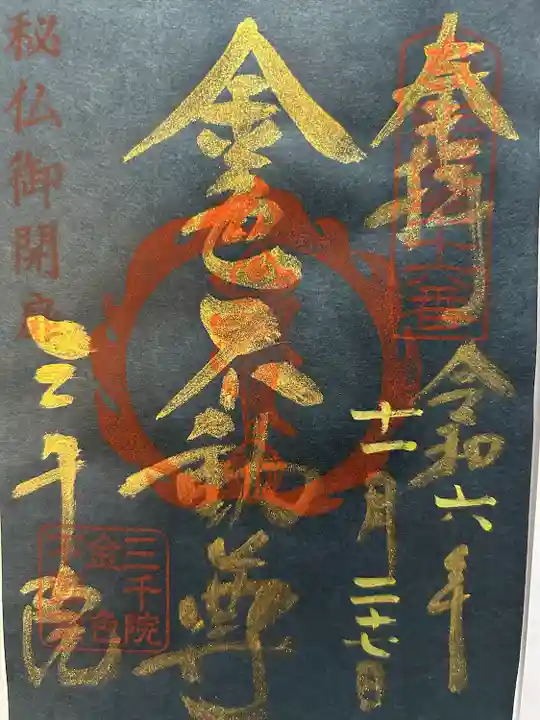 奉拝
令和六年
十一月二十七日
金色不動尊
三千院
秘仏御開扉
三千院
金色